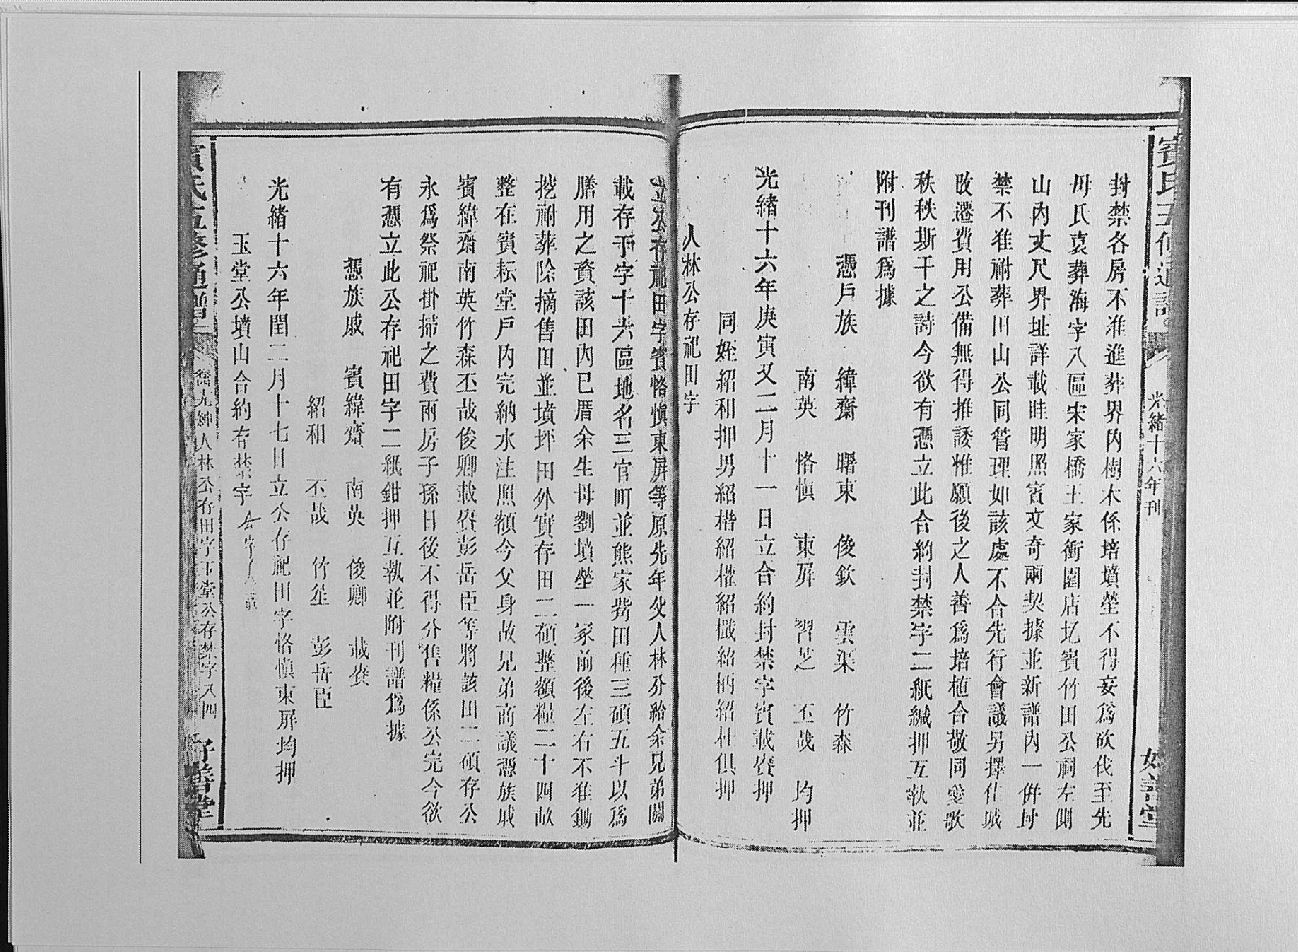 賓氏五修通譜
光緒十六年刊
好善堂
封禁各房不准進葬界內樹木係培墳塋不得妄爲砍伐至先
母氏袁葬海字八區宋家橋土家衝園店圫賓竹田公祠左側
山內丈尺界址詳載畦明照賓文奇嗣契據並新譜內一併封
禁不准祔葬田山公同管理如該處不合先行會議另擇佳城
改遷費用公備無得推諉雅願後之人善爲培植合敬同愛歌
秩秩斯干之詩今欲有憑立此合約封禁字二紙緘押互執並
附刊譜爲據
憑戶族 緯齋 曙東 俊欽 雲渠 竹森
南英 恪愼 東屏 習芝 丕哉 均押
光緒十六年庚寅又二月十一日立合約封禁字賓載賡押
同姪紹和押男紹楷紹權紹檝紹柄紹杜俱押
人林公存祀田字
立公存祀田字賓恪愼東屏等原先年父人林分給余兄弟鬮
載存于字十六區地名三官町並熊家塝田種三碩五斗以爲
膳用之資該田內已厝余生母劉墳塋一冢前後左右不准鋤
挖祔葬除摘售田並墳坪田外實存田二碩整額糧二十四畝
整在賓耘堂戶內完納水注照額今父身故兄弟商議憑族戚
賓緯齋南英竹森丕哉俊卿載賡彭岳臣等將該田二碩存公
永爲祭祀掛掃之費兩房子孫日後不得分售糧係公完今欲
有憑立此公存祀田字二紙鉗押互執並附刊譜爲據
憑族戚 賓緯齋 南英 俊卿 載賡
紹和 丕哉 竹笙 彭岳臣
光緒十六年閏二月十七日立公存祀田字恪愼東屏均押
玉堂公墳山合約存禁字
賓氏五修通譜
人林公存田字玉堂公存禁字八四
好善堂